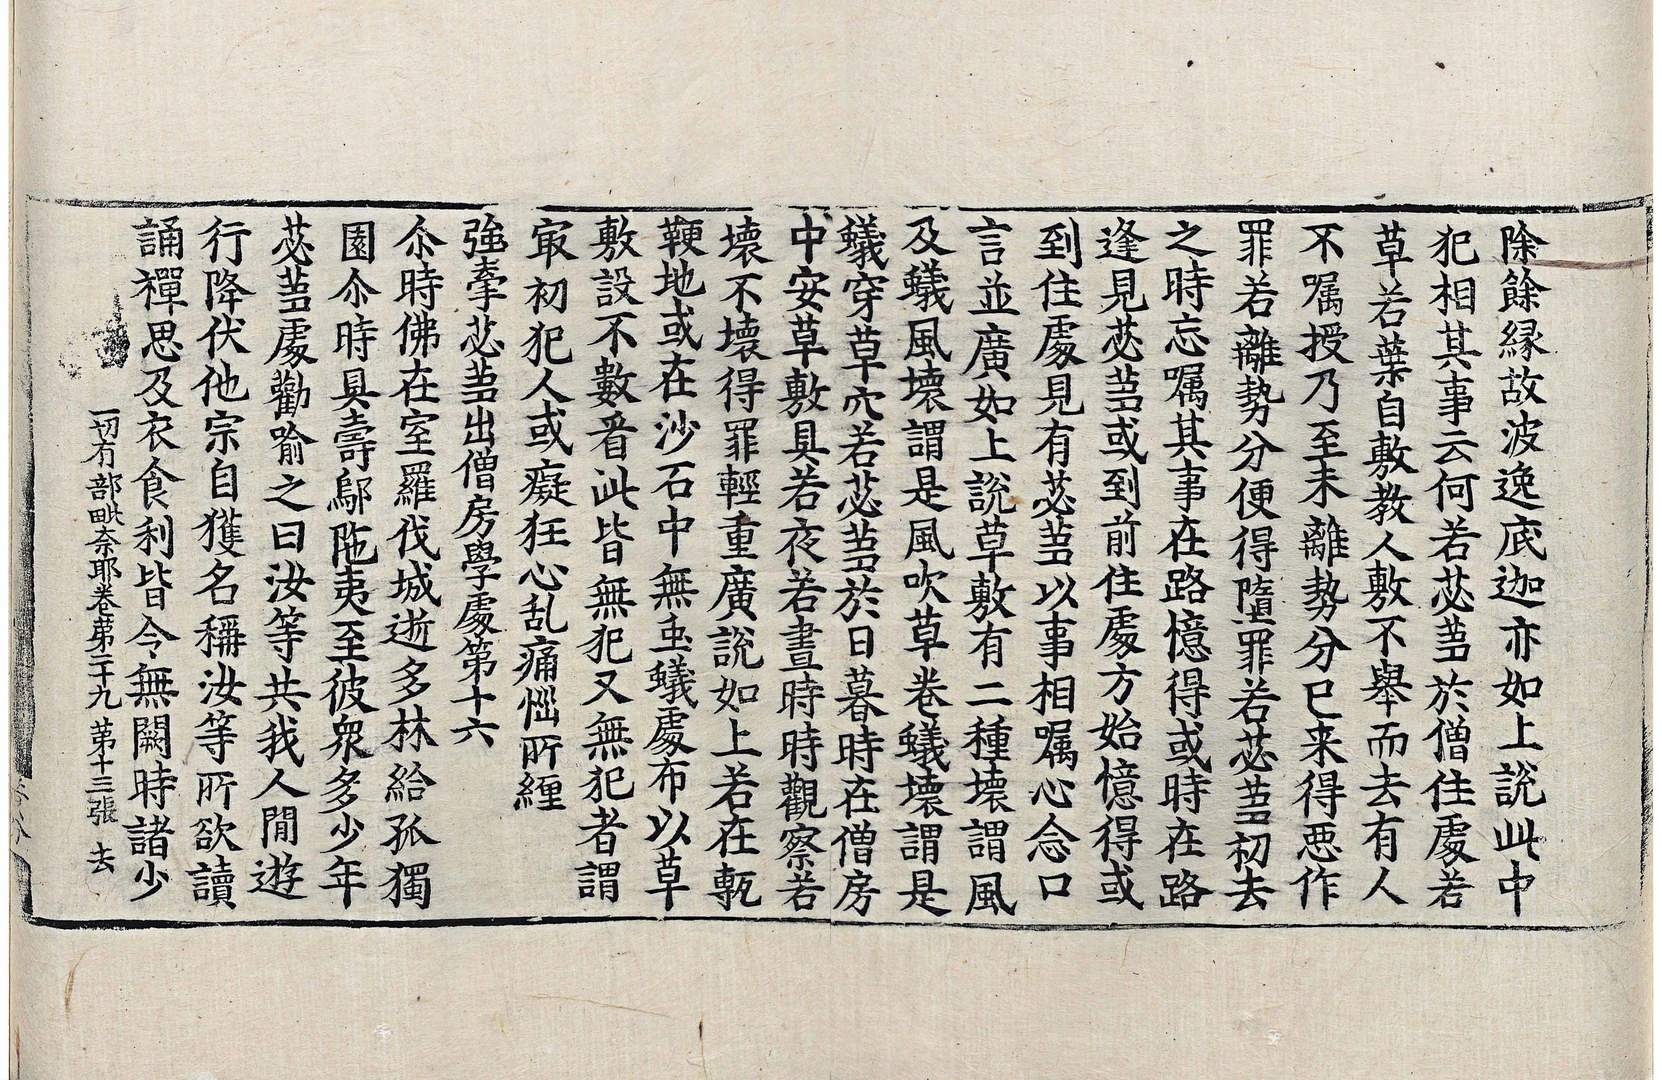 除餘縁故波逸底迦亦如上說此中
犯相其事云何若苾蒭於僧住處若
草若葉自敷教人敷不舉而去有人
不囑授乃至未離勢分已来得惡作
罪若離勢分便得墮罪若苾蒭初去
之時忘囑其事在路憶得或時在路
逢見苾蒭或到前住處方始憶得或
到住處見有苾蒭以事相囑心念口
言並廣如上說草敷有二種壞謂風
及蟻風壞謂是風吹草卷蟻壞謂是
蟻穿草穴若苾蒭於日暮時在僧房
中安草敷具若夜若晝時時觀察若
壞不壞得罪輕重廣說如上若在甎
鞕地或在沙石中無虫蟻處布以草
敷設不數看此皆無犯又無犯者謂
㝡初犯人或癡狂心乱痛惱所纒
強牽苾蒭出僧房學處第十六
尒時佛在室羅伐城逝多林給孤獨
園尒時具壽鄔陁夷至彼衆多少年
苾蒭處勸喻之曰汝等共我人閒遊
行降伏他宗自獲名稱汝等所欲讀
誦禪思及衣食利皆令無闕時諸少
一切有部毗奈耶卷苐二十九 苐十三張 去